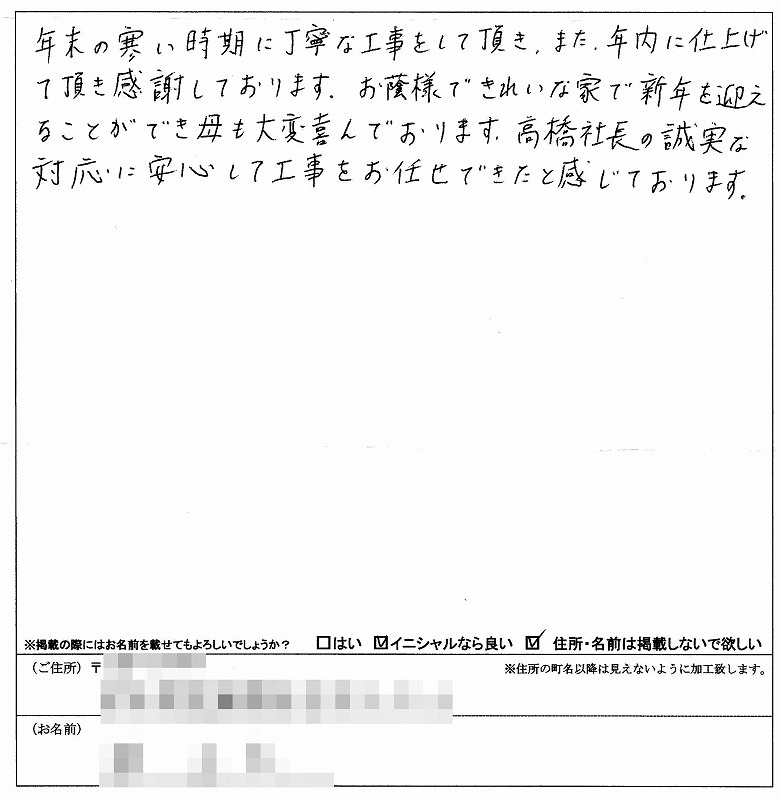 年末の寒い時期に丁寧な工事をして頂き、また、年内に仕上げ
て頂き感謝しております。お蔭様できれいな家で新年を迎え
ることができ母も大変喜んでおります。高橋社長の誠実な
対応に安心して工事をお任せできたと感じております。
※掲載の際にはお名前を載せてもよろしいでしょうか? □はい ☑イニシャルなら良い ☑ 住所・名前は掲載しないで欲しい
(ご住所) 〒 ※住所の町名以降は見えないように加工致します。
(お名前)